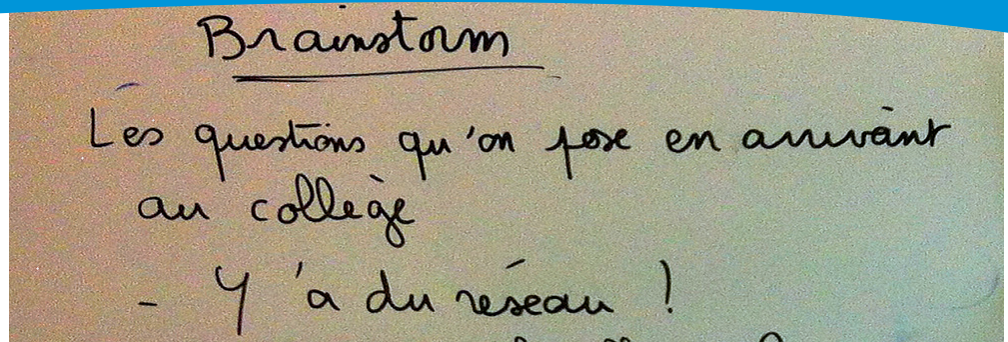 Brainstorm
Les questions qu'on pose en arrivant
au collège
- Y'a du réseau !